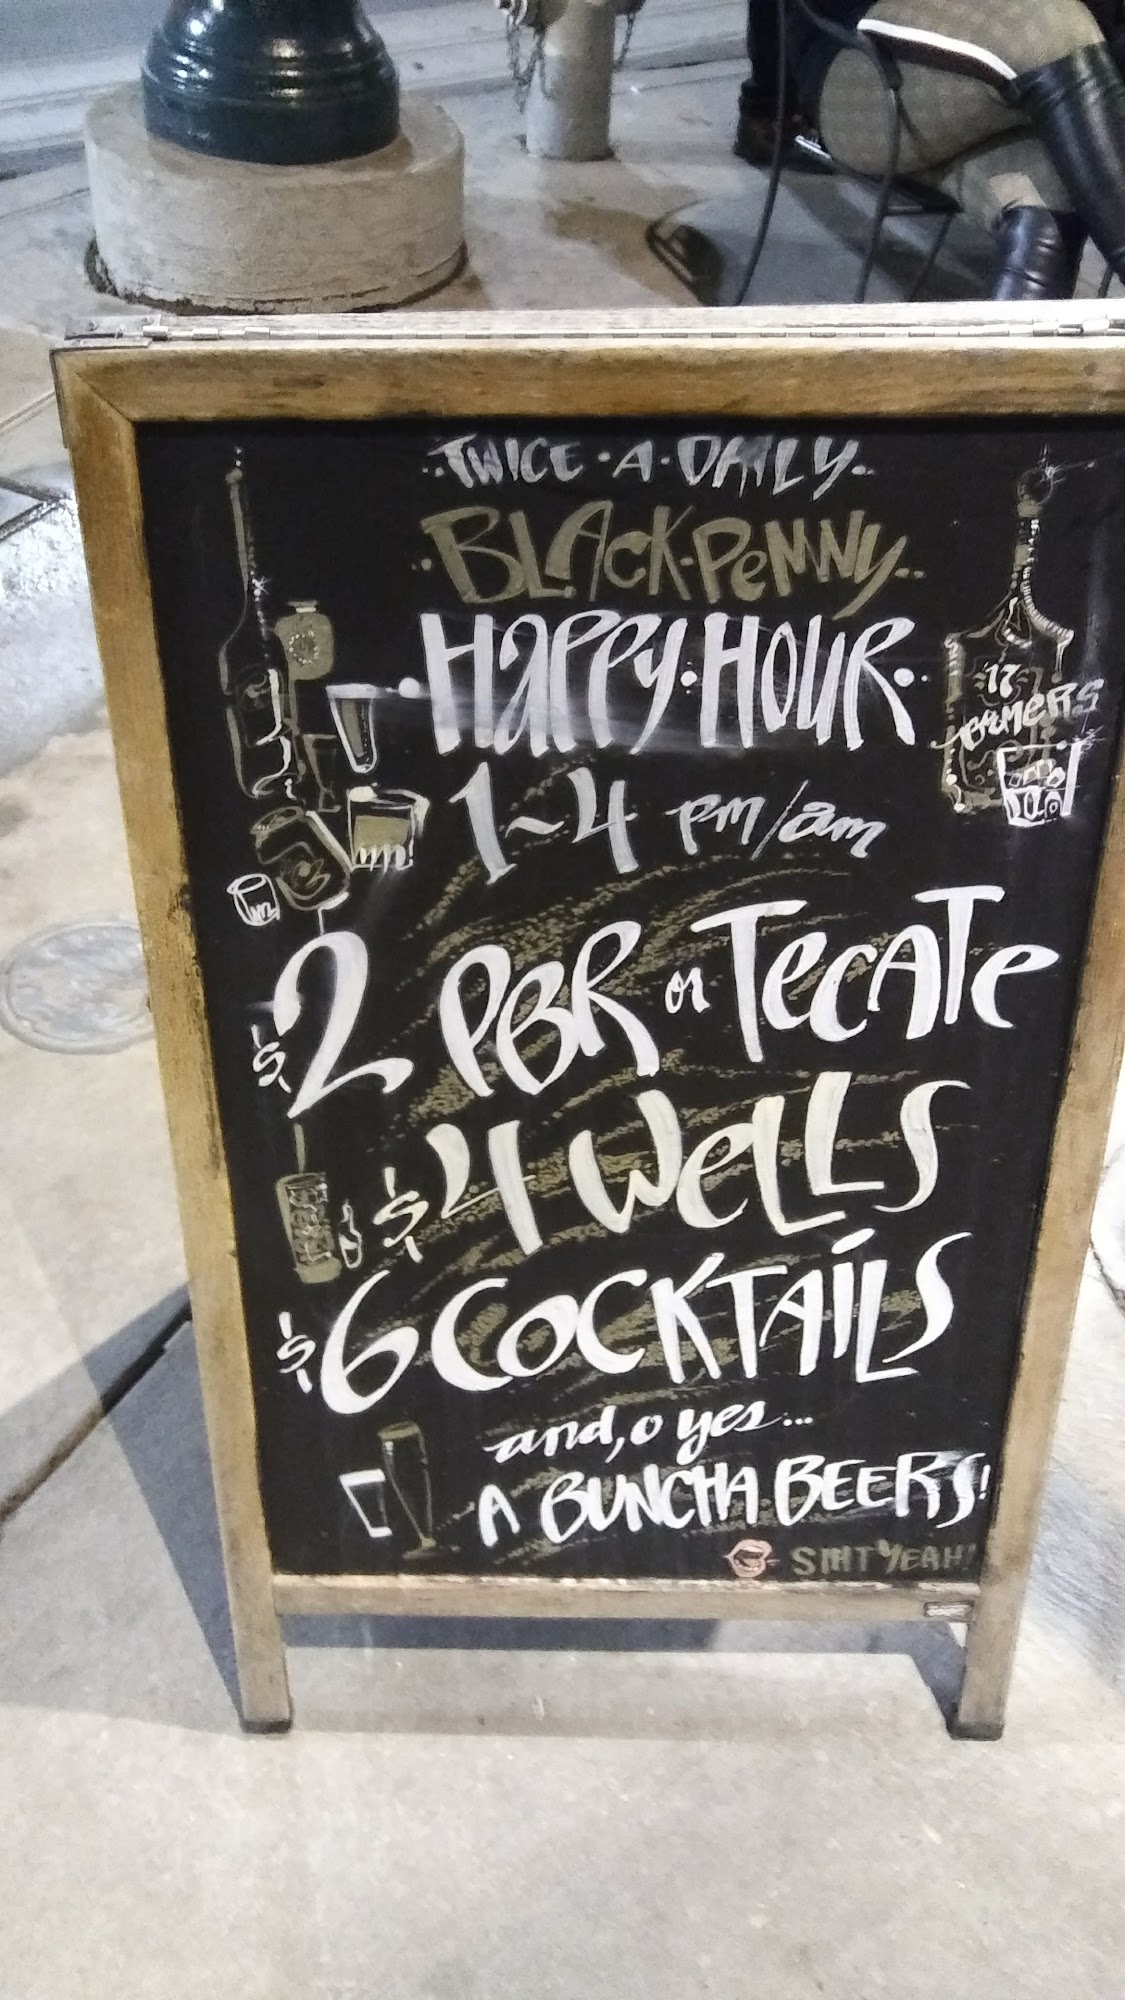 TWICE·A·DAILY
BLACK·PENNY
HAPPY·HOUR
1~4 pm/am
$2 PBR or TECATE
$4 WELLS
$6 COCKTAILS
and, o yes...
A BUNCHA BEERS!
YEAH!
17